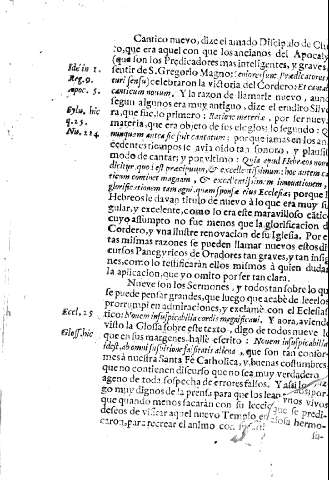 Cantico nuevo, dize el amado Discipulo de
ro, que era aquel con que los ancianos del Apocaly
(que son los Predicadores mas inteligentes, y graves,
Idē in 1.
sentir de S. Gregorio Magno:
Reg. 9.
celebraron la victoria del Cordero: Et
Apoc. 5.
canticum novum. Y la razon de llamarle nuevo, aun
segun algunos era muy antiguo, dize el erudito Silve
Sylu. hic
ra, que fue, lo primero: Ratione materiæ, por ser nueva
q.25.
materia, que era objeto de sus elogios: lo segundo:
Nu. 214.
nunquam antea sic fuit cantatum: porque jamas en los an
cedentes tiempos se avia oido tan sonora, y plausi
modo de cantar; y por vltimo: Quia apud Hebreos
dicitur, quo d est præcipuum, & excellentissimum: hoc autem
ticum continet magnam, & excellentissimam
glorificationem tam agni, quam sponsæ eius Ecclesiæ: porque
Hebreos le davan titulo de nuevo à lo que era muy
gular, y excelente, como lo era este maravilloso cātic
cuyo assumpto no fue menos que la glorificacion d
Cordero, y vna ilustre renovacion de su Iglesia. Por e
tas mismas razones se pueden llamar nuevos estos di
cursos Panegyricos de Oradores tan graves, y tan insig
nes, como lo testificaràn ellos mismos à quien duda
la aplicacion, que yo omito por ser tan clara.
Nueve son los Sermones, y todos tan sobre lo qu
se puede pensar grandes, que luego que acabè de leerlos
prorrumpì en admiraciones, y exclamè con el Eclesias
Eccl. 25
tico: Novem insuspicabilia cordis magnificavi. Y aora, aviendo
visto la Glosa sobre este texto, digo de todos nueve lo
Gloss. hic
que en sus margenes hallè escrito: Novem insuspicabilia
idest, ab omni suspitione falsitatis aliena, que son tan confor-
mes à nuestra Santa Fè Catholica, y buenas costumbres,
que no contienen discurso que no sea muy verdadero
ageno de toda sospecha de errores falsos. Y assi lo
go muy dignos de la prensa para que los lean
que quando menos sacaràn con su lecci vnos vivos
deseos de visitar aquel nuevo Templo en que se predi-
caron, para recrear el animo con losa hermo-
su-